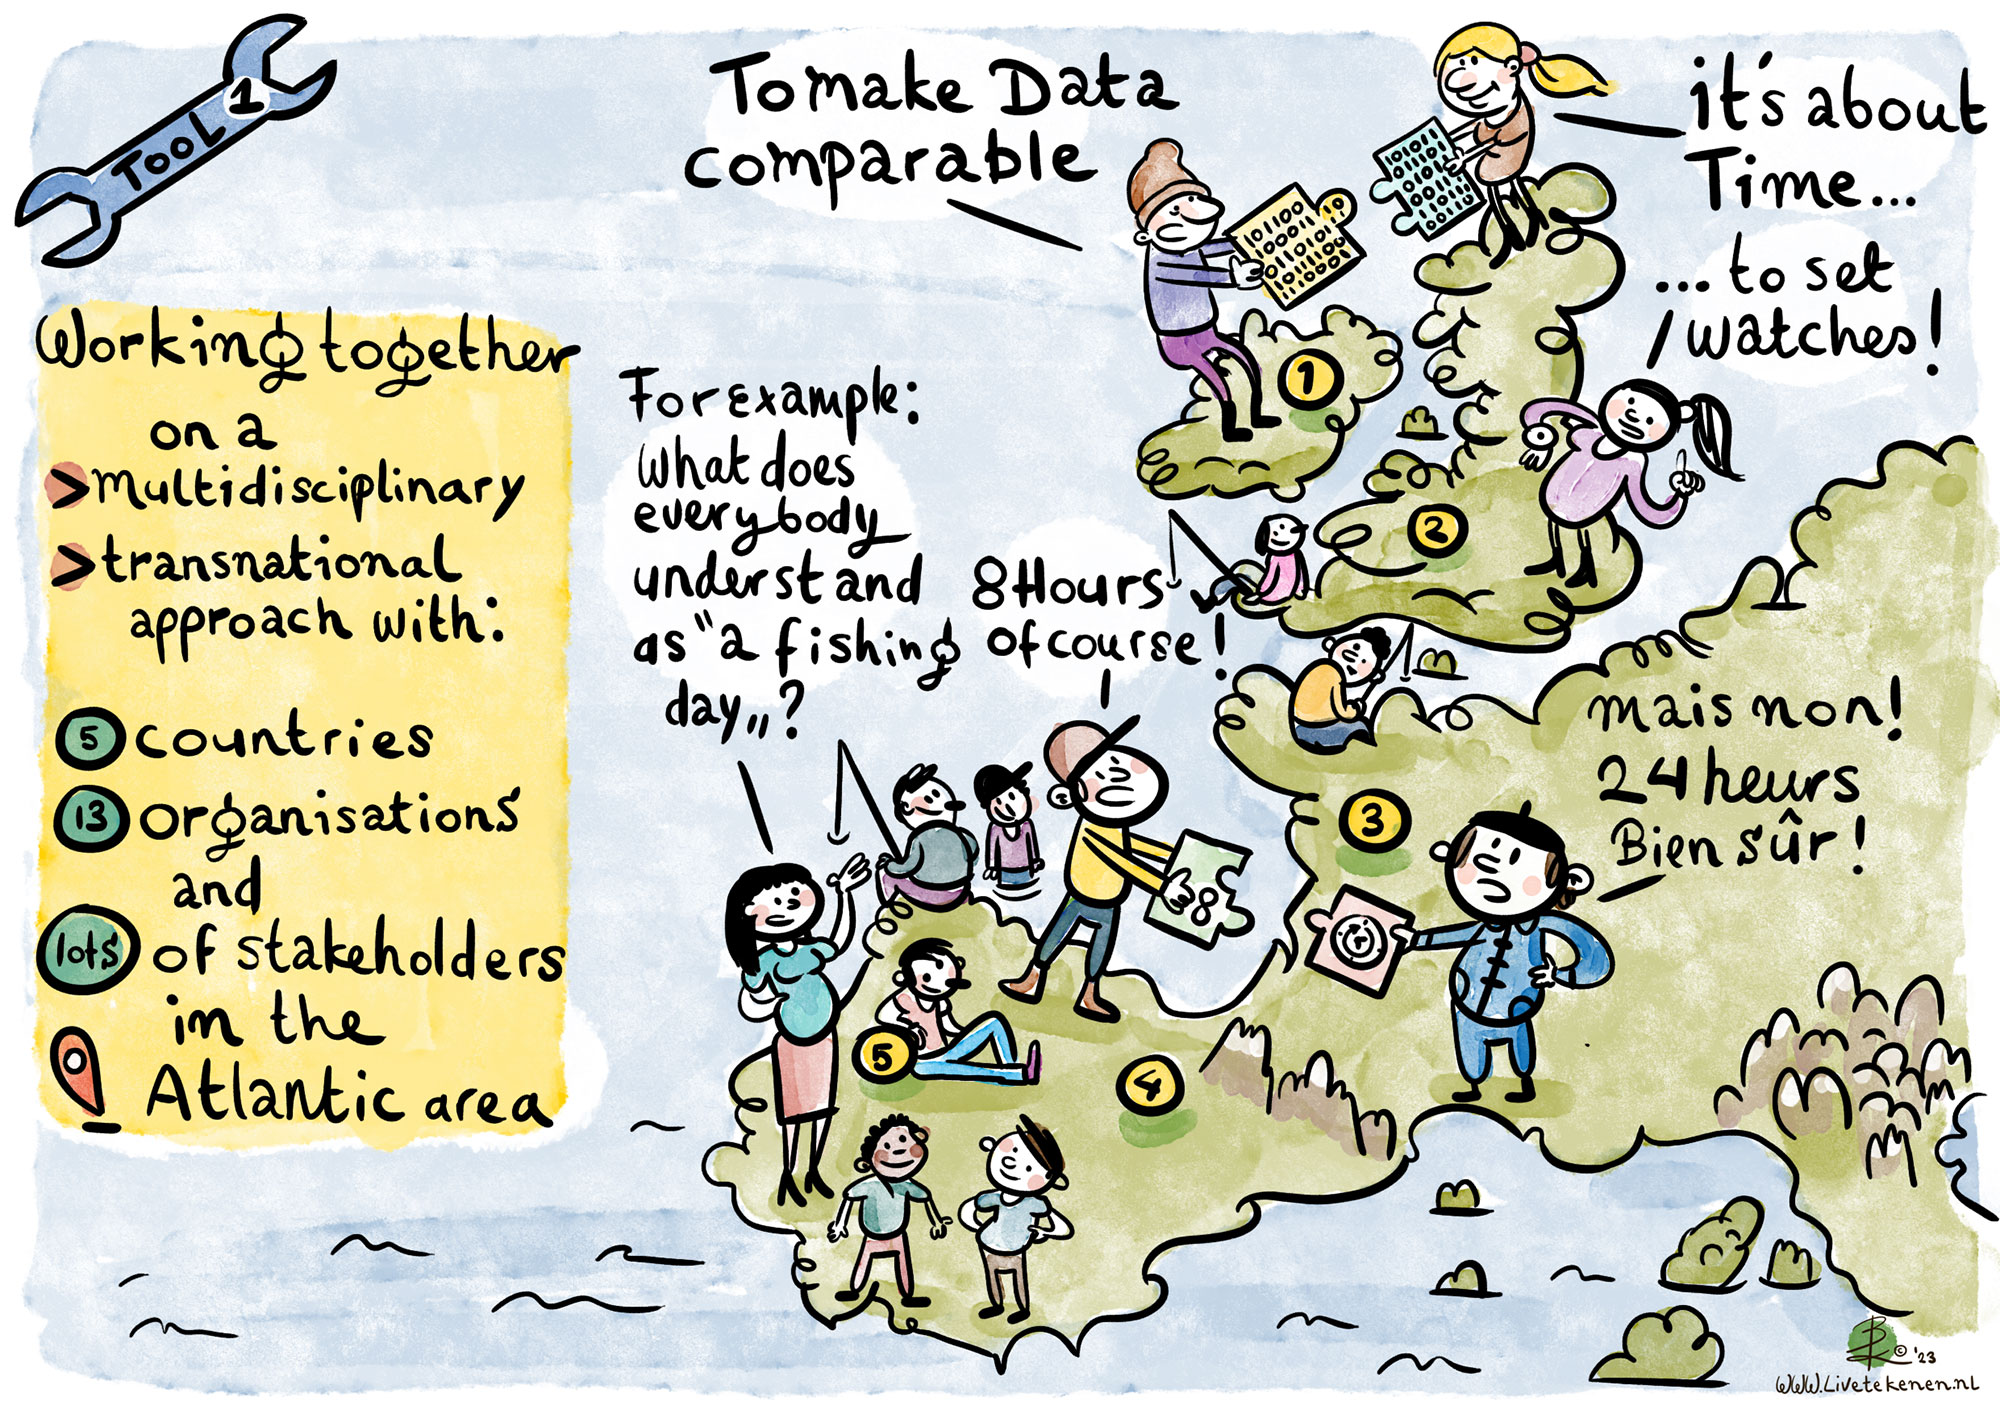 TOOL 1
Working together
on a
> multidisciplinary
> transnational
approach with:
5 countries
13 organisations
and
lots of stakeholders
in the
Atlantic area
To make Data
comparable
it's about
Time...
...to set
watches!
For example:
What does
everybody
understand
as "a fishing
day„?
8 Hours
of course!
mais non!
24 heurs
Bien sûr!
101100
100011
010101
011100
1
10
10110
01011
01010
01011
2
3
8
5
4
© '23
www.livetekenen.nl